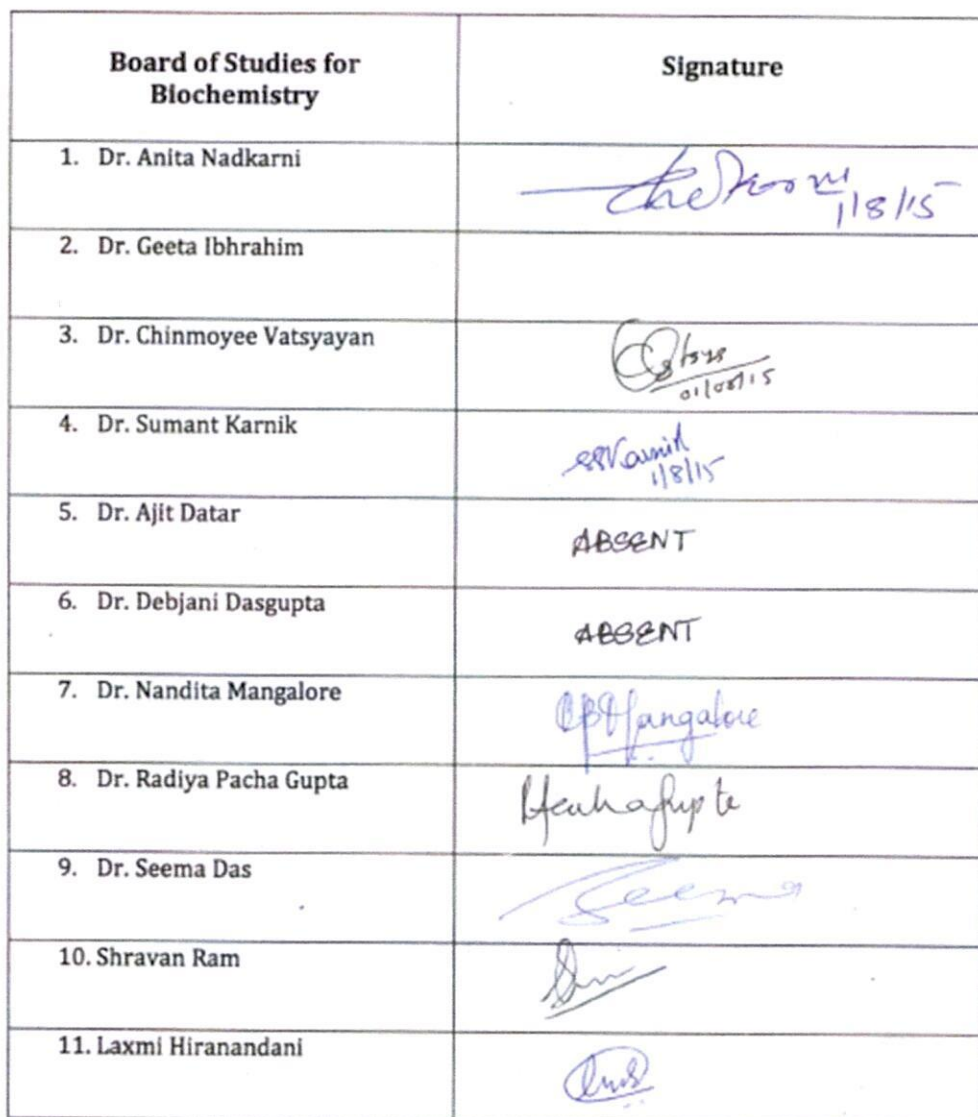 Board of Studies for
Biochemistry
Signature
1. Dr. Anita Nadkarni
1/8/15
2. Dr. Geeta Ibhrahim
3. Dr. Chinmoyee Vatsyayan
01/08/15
4. Dr. Sumant Karnik
SSKarnik
1/8/15
5. Dr. Ajit Datar
ABSENT
6. Dr. Debjani Dasgupta
ABSENT
7. Dr. Nandita Mangalore
Mangalore
8. Dr. Radiya Pacha Gupta
9. Dr. Seema Das
Seema
10. Shravan Ram
11. Laxmi Hiranandani